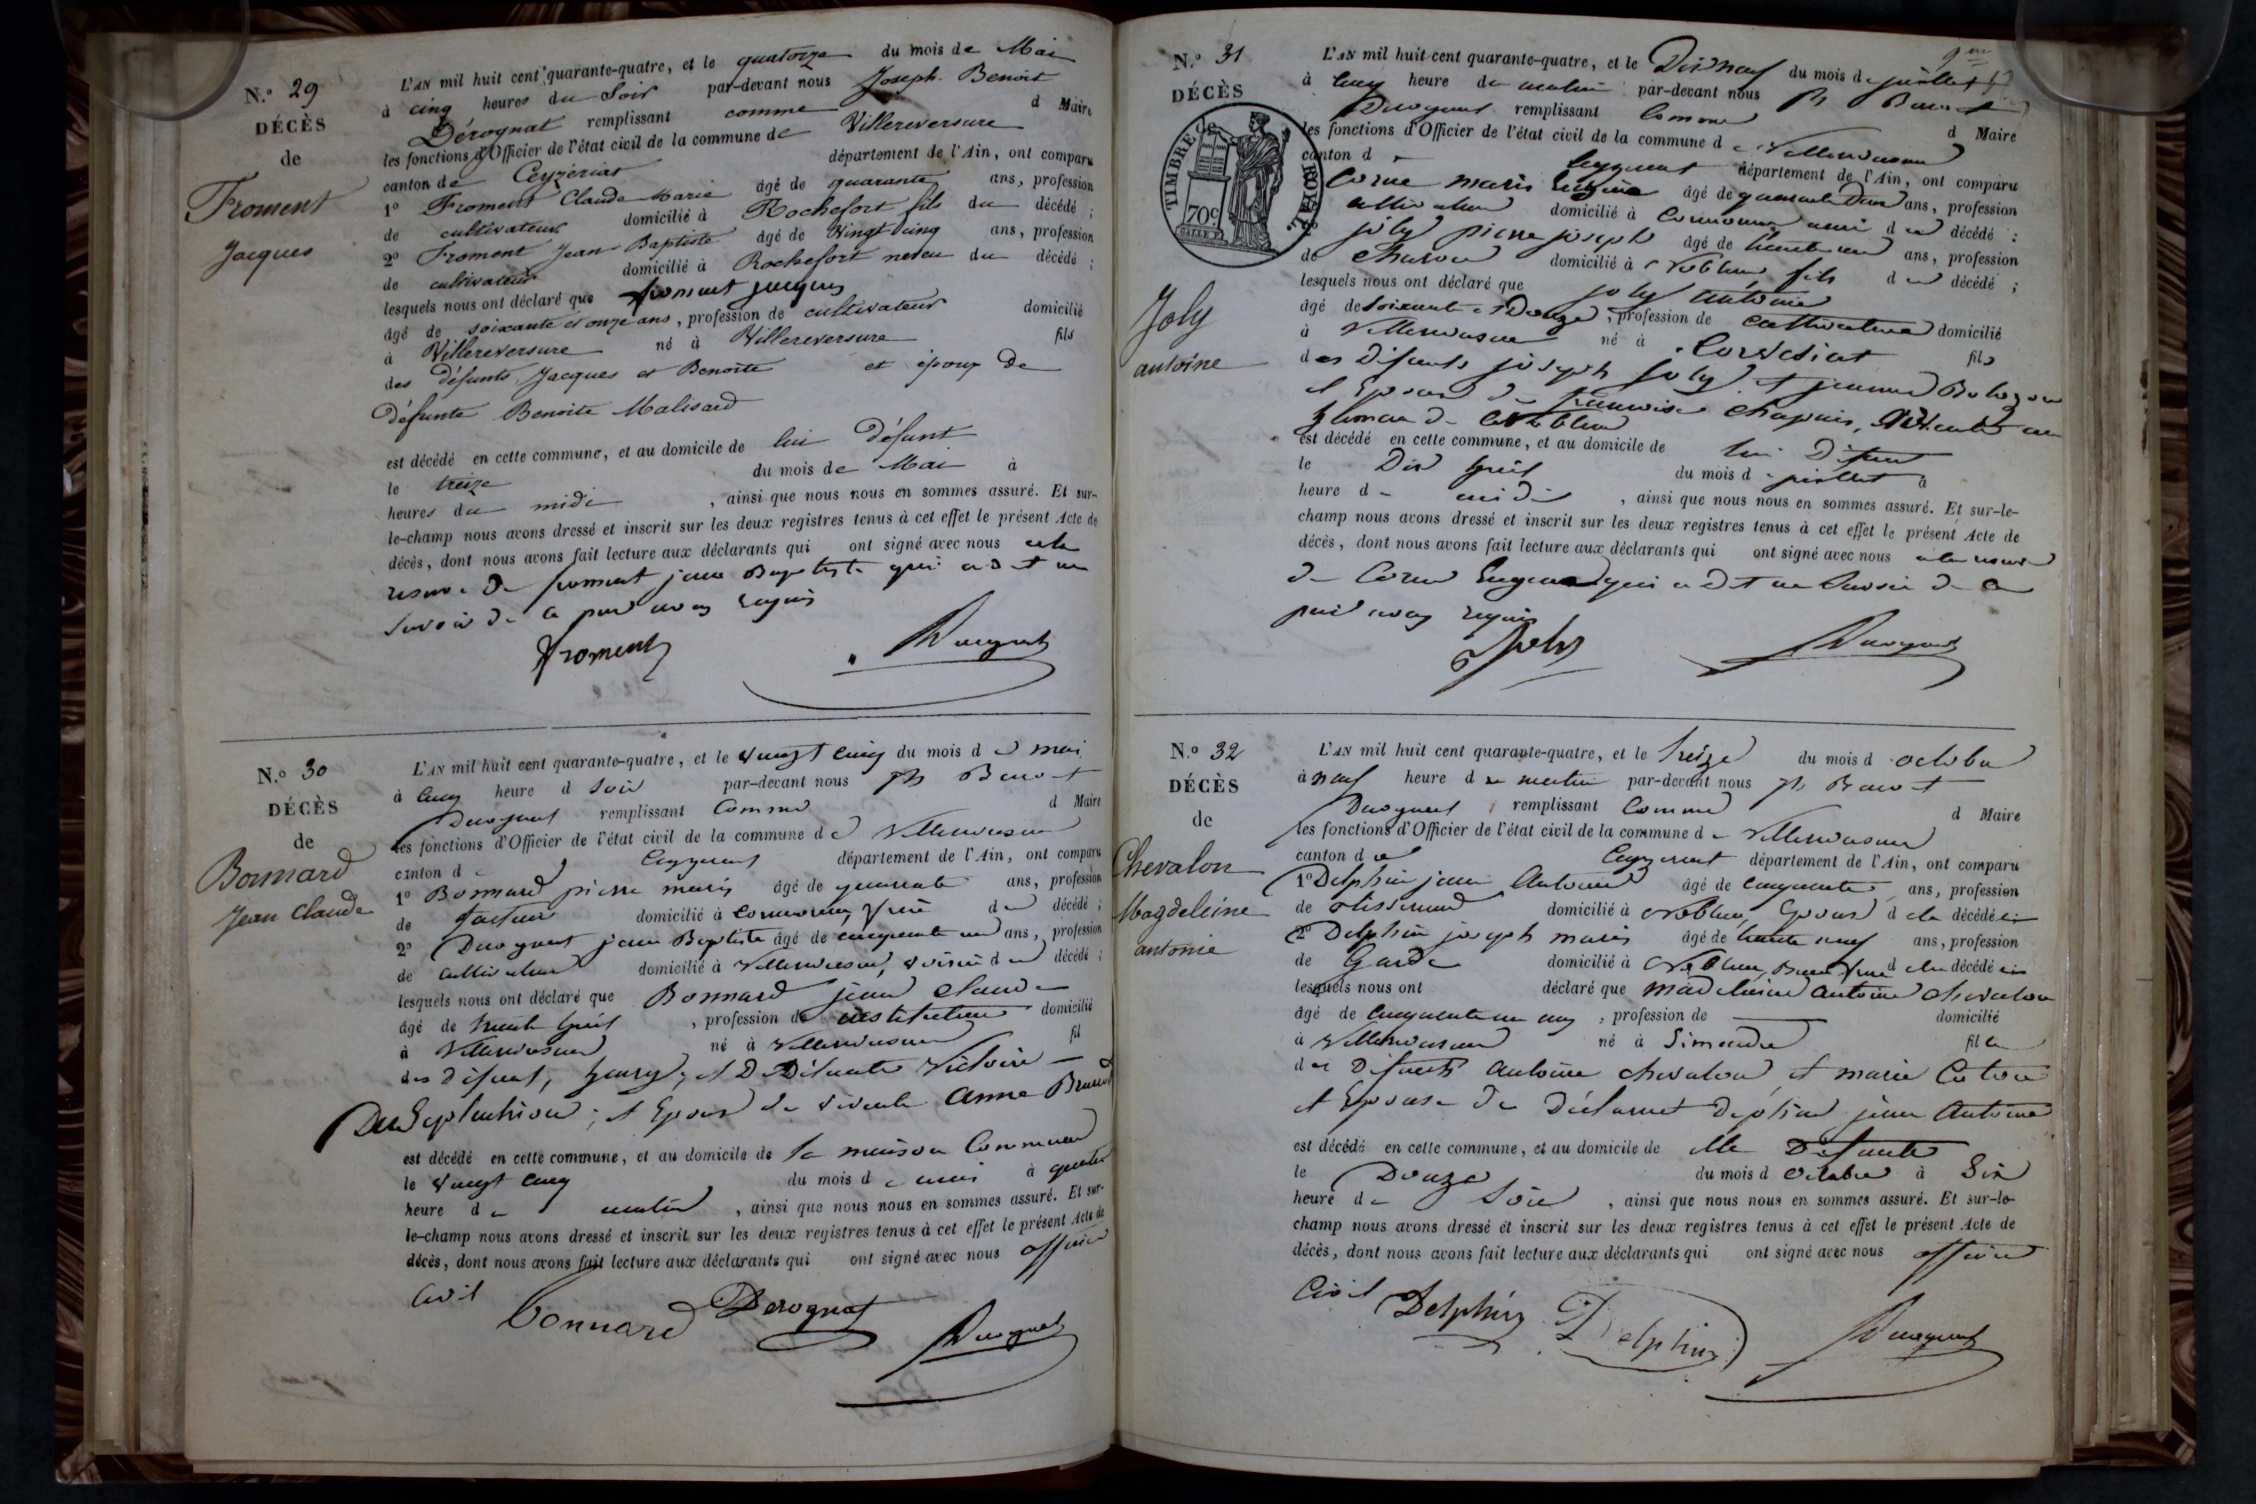 N.º 29
DÉCÈS
de
Froment
Jacques
L'AN mil huit cent quarante-quatre, et le quatorze du mois de Mai
à cinq heures du Soir par-devant nous Joseph Benoit
Dérognat remplissant comme d Maire
les fonctions d'Officier de l'état civil de la commune de Villereversure
canton de Ceyzériat département de l'Ain, ont comparu
1º Froment Claude Marie âgé de quarante ans, profession
de cultivateur domicilié à Rochefort fils du décédé ;
2º Froment Jean Baptiste âgé de Vingt cinq ans, profession
de cultivateur domicilié à Rochefort neveu du décédé ;
lesquels nous ont déclaré que froment jacques
âgé de soixante et onze ans, profession de cultivateur domicilié
à Villereversure né à Villereversure fils
des défunts Jacques et Benoite et époux De
Défunte Benoite Malisard
est décédé en cette commune, et au domicile de lui Défunt
le treize du mois de Mai à
heures du midi , ainsi que nous nous en sommes assuré. Et sur-
le-champ nous avons dressé et inscrit sur les deux registres tenus à cet effet le présent Acte de
décès, dont nous avons fait lecture aux déclarants qui ont signé avec nous
de froment jean Baptiste qui a dit ne
Savoir de ce requis
Froment
Derognat
N.º 30
DÉCÈS
de
Bonnard
Jean Claude
L'AN mil huit cent quarante-quatre, et le vingt cinq du mois de mai
à cinq heure d Soir par-devant nous Jh Benoit
Derognat remplissant Comme d Maire
les fonctions d'Officier de l'état civil de la commune de Villereversure
canton de Ceyzeriat département de l'Ain, ont comparu
1º Bonnard pierre marie âgé de quarante ans, profession
de facteur domicilié à frère du décédé ;
2º Derognat jean Baptiste âgé de cinquante un ans, profession
de cultivateur domicilié à Villereversure, voisin du décédé ;
lesquels nous ont déclaré que Bonnard jean claude
âgé de trente huit , profession de instituteur domicilié
à Villereversure né à Villereversure fil
des défunt, et De Défunte Victoire
; et Epoux de vivante Anne
est décédé en cette commune, et au domicile de la maison Commune
le vingt cinq du mois de mai à quatre
heure de matin , ainsi que nous nous en sommes assuré. Et sur-
le-champ nous avons dressé et inscrit sur les deux registres tenus à cet effet le présent Acte de
décès, dont nous avons fait lecture aux déclarants qui ont signé avec nous officier
Civil
bonnard
Derognat
Derognat
N.º 31
DÉCÈS
TIMBRE ROYAL
70c
Joly
antoine
L'AN mil huit cent quarante-quatre, et le Dix neuf du mois de juillet
à cinq heure du matin par-devant nous Jh Benoit
Derognat remplissant Comme d Maire
les fonctions d'Officier de l'état civil de la commune de Villereversure
canton d Ceyzeriat département de l'Ain, ont comparu
Corne marie Eugène âgé de quarante Deux ans, profession
cultivateur domicilié à ami du décédé ;
joly pierre joseph âgé de trente un ans, profession
de charron domicilié à Noblens, fils du décédé ;
lesquels nous ont déclaré que joly antoine
âgé de soixante et Douze , profession de cultivateur domicilié
à Villereversure né à Corvessiat fils
des Defunts joseph joly et jeanne Bolozon
et Epoux de francoise chapuis,
est décédé en cette commune, et au domicile de lui Defunt
le Dix huit du mois de juillet à
heure de midi , ainsi que nous nous en sommes assuré. Et sur-le-
champ nous avons dressé et inscrit sur les deux registres tenus à cet effet le présent Acte de
décès, dont nous avons fait lecture aux déclarants qui ont signé avec nous
de Corne Eugene qui a dit ne Savoir de ce
requis
Joly
Derognat
N.º 32
DÉCÈS
de
Chevalon
Magdeleine
antonie
L'AN mil huit cent quarante-quatre, et le treize du mois d octobre
à neuf heure du matin par-devant nous Jh Benoit
Derognat remplissant Comme d Maire
les fonctions d'Officier de l'état civil de la commune de Villereversure
canton de Ceyzeriat département de l'Ain, ont comparu
1º Delphin jean Antoine âgé de cinquante ans, profession
de tisserand domicilié à Noblens, Epoux d la décédée ;
2º Delphin joseph marie âgé de trente neuf ans, profession
de Garde domicilié à Noblens, Beau frere d la décédée
lesquels nous ont déclaré que madeleine antoine chevalon
âgé de cinquante un ans , profession de domicilié
à Villereversure né à Simandre fille
des Defunts Antoine chevalon et marie
et Epouse De Déclarant Delphin jean Antoine
est décédé en cette commune, et au domicile de elle Defunte
le Douze du mois d octobre à Six
heure de Soir , ainsi que nous nous en sommes assuré. Et sur-le-
champ nous avons dressé et inscrit sur les deux registres tenus à cet effet le présent Acte de
décès, dont nous avons fait lecture aux déclarants qui ont signé avec nous officier
Civil
Delphin
Delphin
Derognat